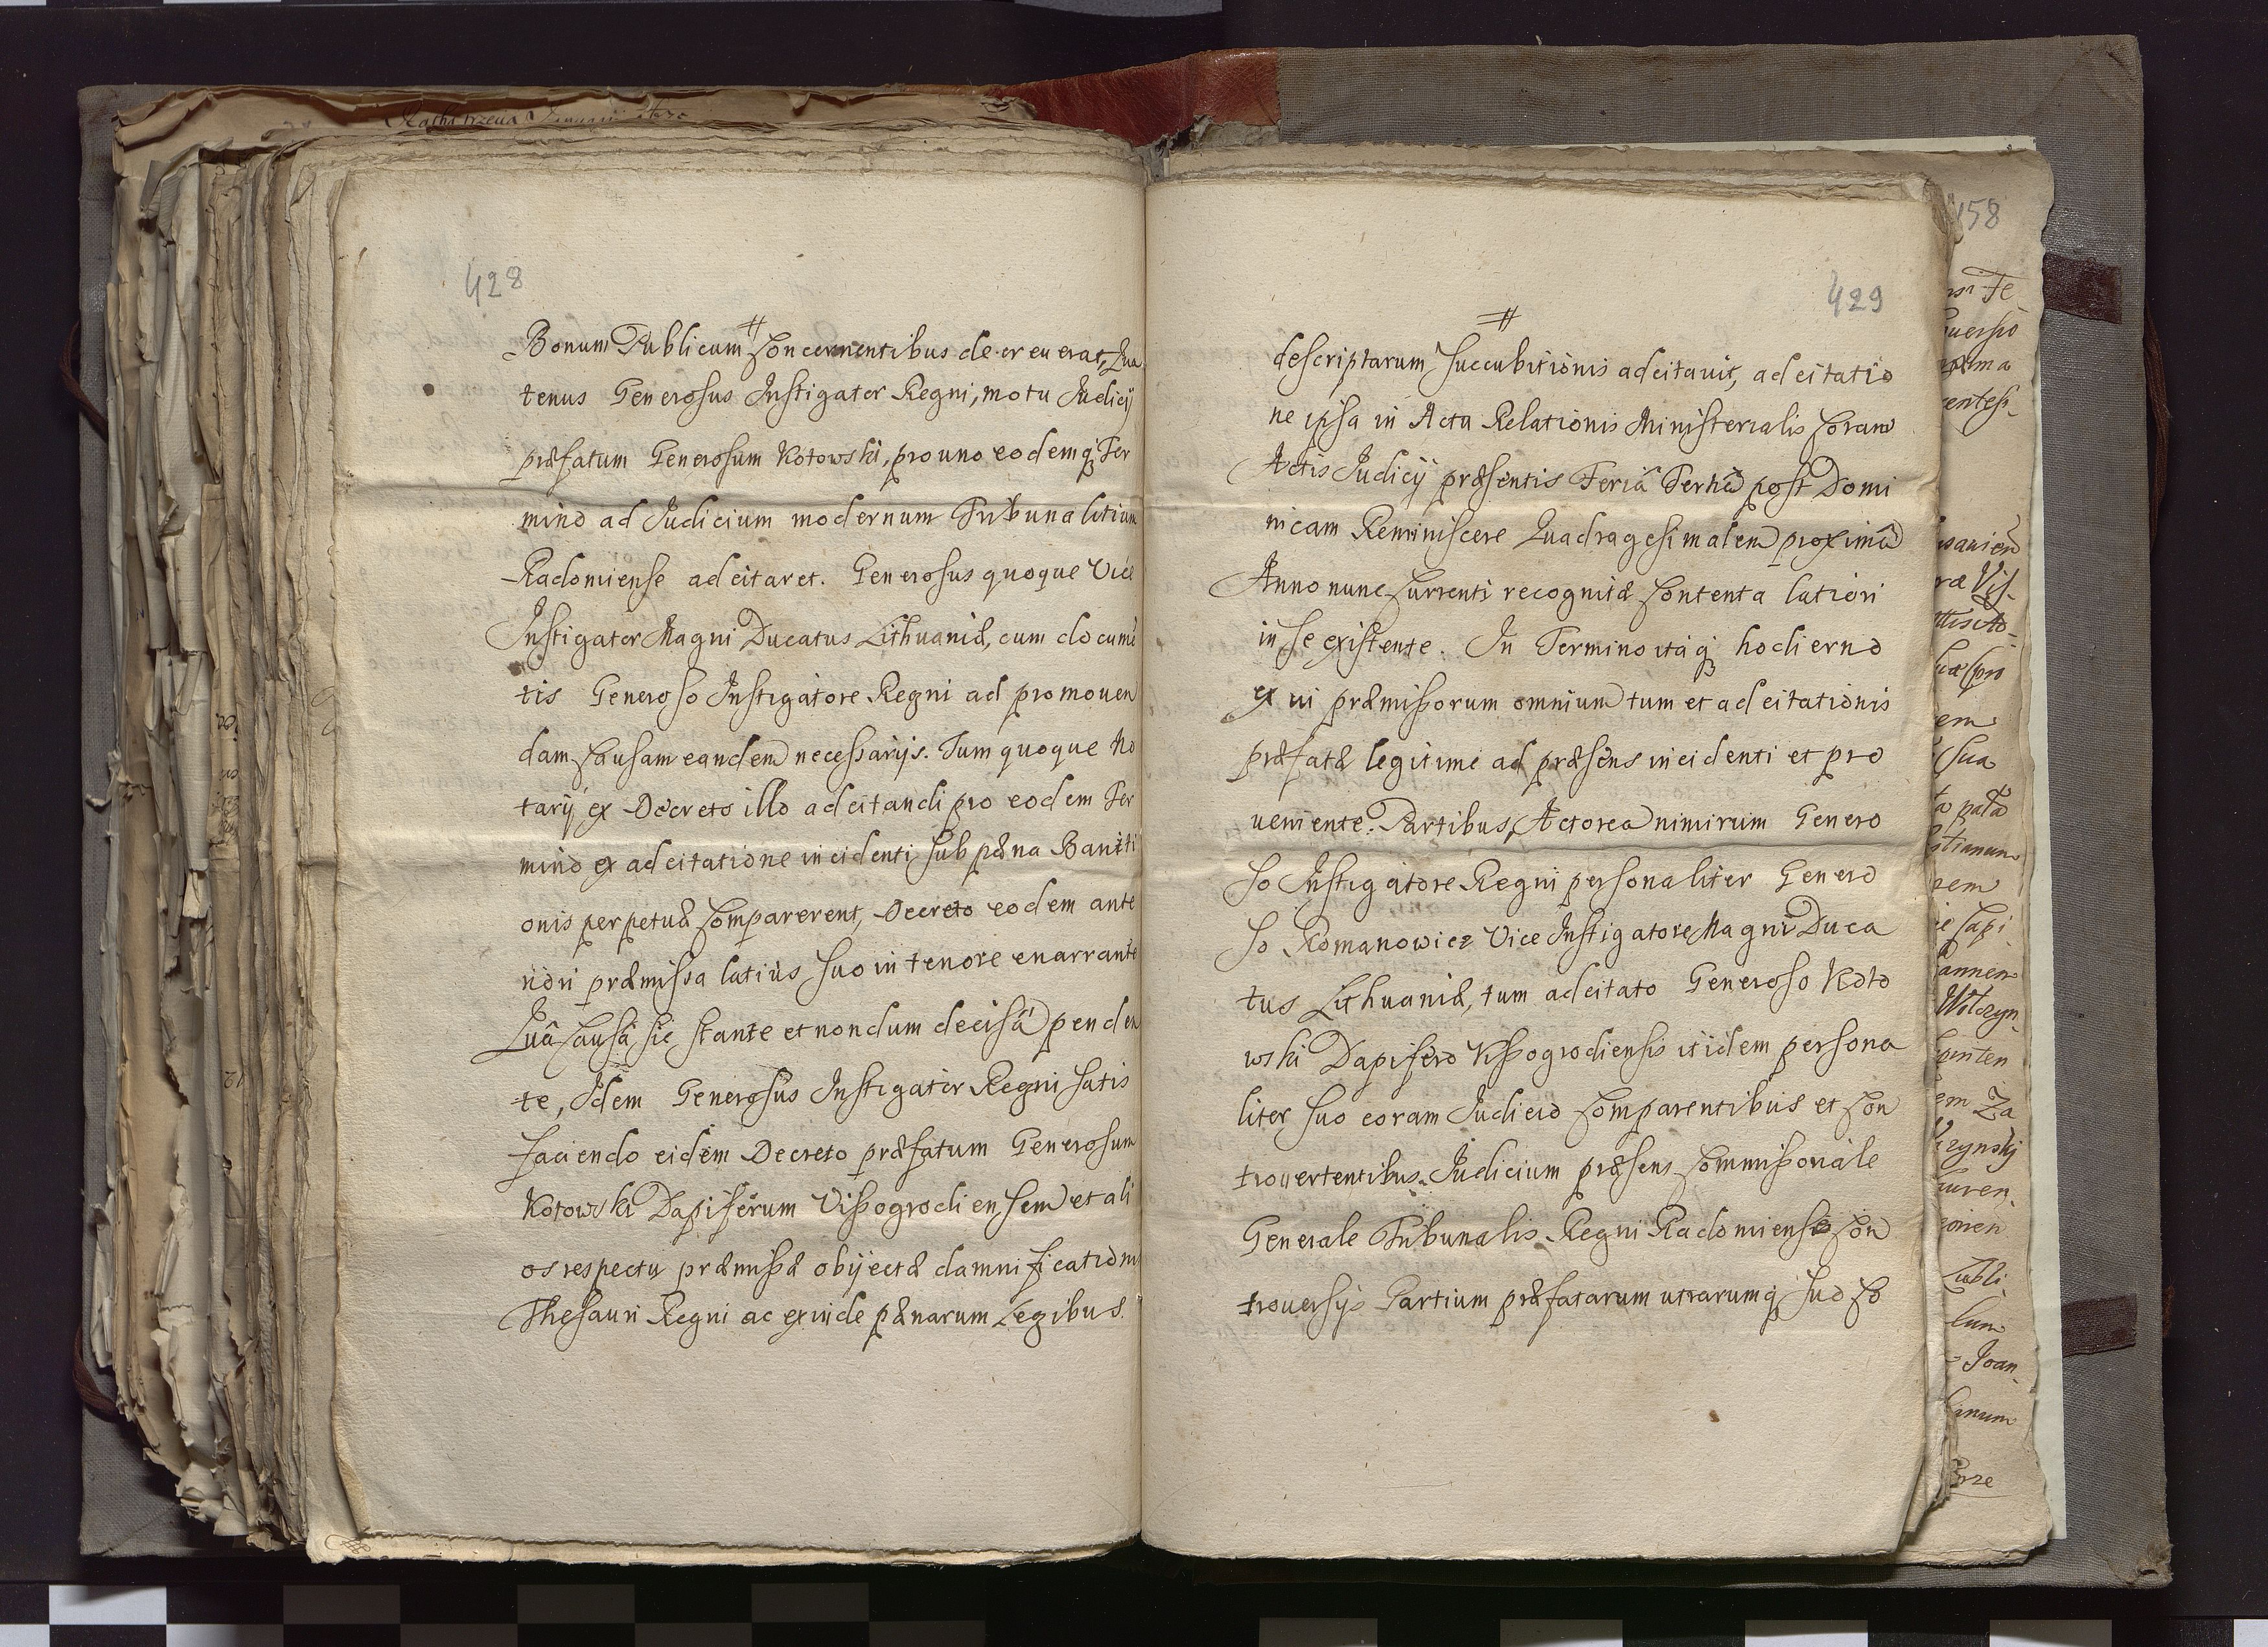 428
Bonum Publicum Concernentibus decreuerat, Qua
tenus Generosus Instigator Regni, motu Judicij
præfatum Generosum Kotowski, pro uno eodemq; Ter
mino ad Judicium modernum Tribunalitium
Radomiense adcitaret. Generosus quoque Vice
Instigator Magni Ducatus Lithuaniæ, cum documẽ
tis Generoso Instigatore Regni ad promouen
dam Causam eandem necessarijs. Tum quoque No
tarij ex Decreto illo adcitandi pro eodem Ter
mino ex adcitatione incidenti sub pæna Banniti
onis perpetuæ Comparerent, Decreto eodem ante
riori præmissa latiùs suo in tenore enarrante
Quâ Causâ sic stante et nondum decisâ penden
te, Idem Generosus Instigator Regni satis
faciendo eidem Decreto præfatum Generosum
Kotowski Dapiferum Vissogrodiensem et ali
os respectu præmissæ obijectæ damnificationis
Thesauri Regni ac exinde pænarum Legibus
429
descriptarum succubitionis adcitauit, adcitatio
ne ipsa in Acta Relationis Ministerialis Coram
Actis Judicij præsentis Feriâ Tertiâ post Domi
nicam Reminiscere Quadragesimalem proximâ
Anno nunc Currenti recognitæ Contenta latiori
in se existente. In Termino itaq; hodierno
ex vi præmissorum omnium tum et adcitationis
præfatæ legitime ad præsens incidenti et pro
ueniente. Partibus, Actorea nimirum Genero
so Instigatore Regni personaliter Genero
so Romanowicz Vice Instigatore Magni Duca
tus Lithuaniæ, tum adcitato Generoso Koto
wski Dapifero Vissogrodiensis itidem persona
liter suo coram Judicio Comparentibus et Con
trouertentibus. Judicium præsens Commissoriale
Generale Tribunalis Regni Radomiensis Con
trouersijs Partium præfatarum utrarumq; suo Co
158